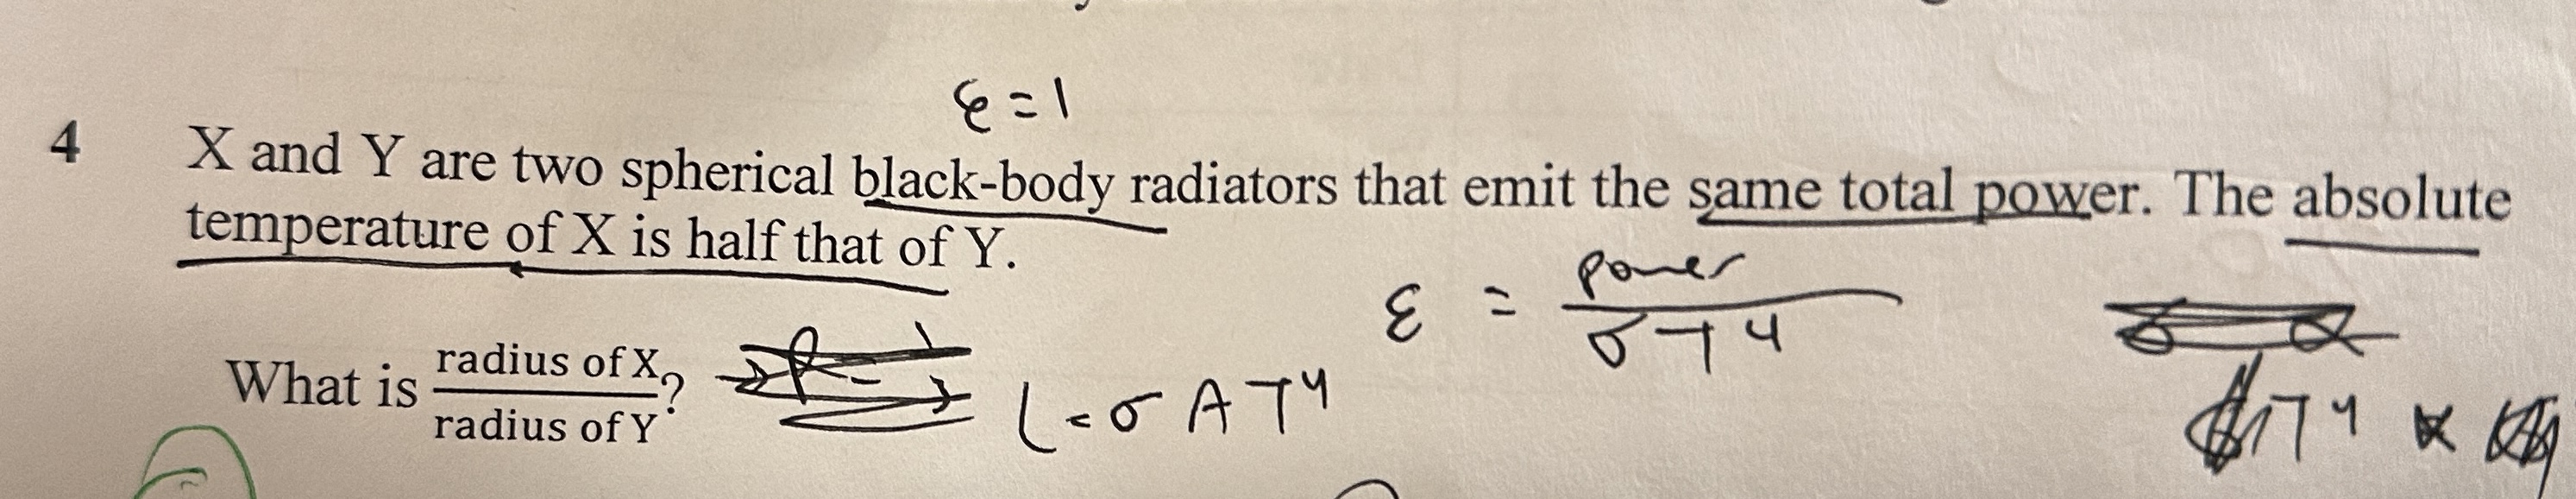 ε = 1
4 X and Y are two spherical black-body radiators that emit the same total power. The absolute
temperature of X is half that of Y.
ε = power / σT⁴
What is radius of X / radius of Y?
L = σ A T⁴
T⁴ ×